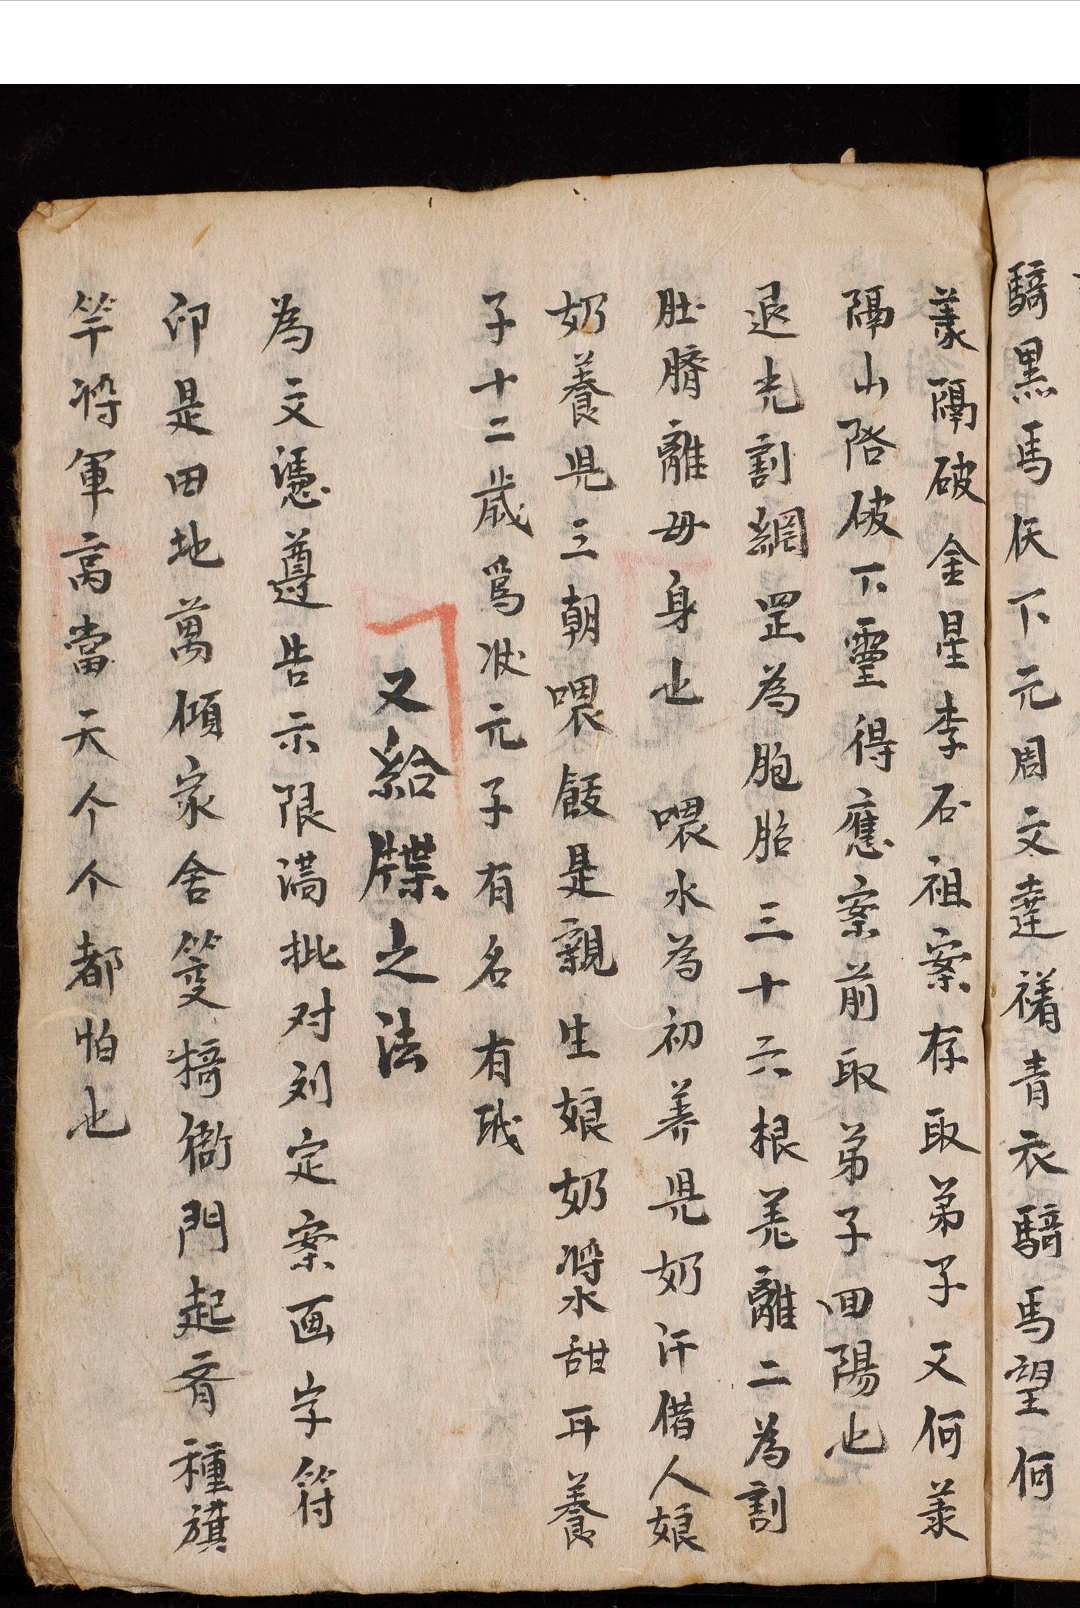 騎黑馬伕下元周文達褚青衣騎馬望何
羕隔破金星李石祖案存取弟子又何羕
隔山啓破下靈得應案前取弟子回陽也
退光割網罡為胞胎三十六根羌離二為割
肚臍離母身也 喂水為初养児奶汗借人娘
奶養児三朝喂飯是親生娘奶漿水甜耳養
子十二歲為准元子有名有
又給牒之法
為文憑遵告示限滿批对刘定案画字符
印是田地萬傾家舍箰椅衙門起脊種旗
竿將軍高當天个个都怕也